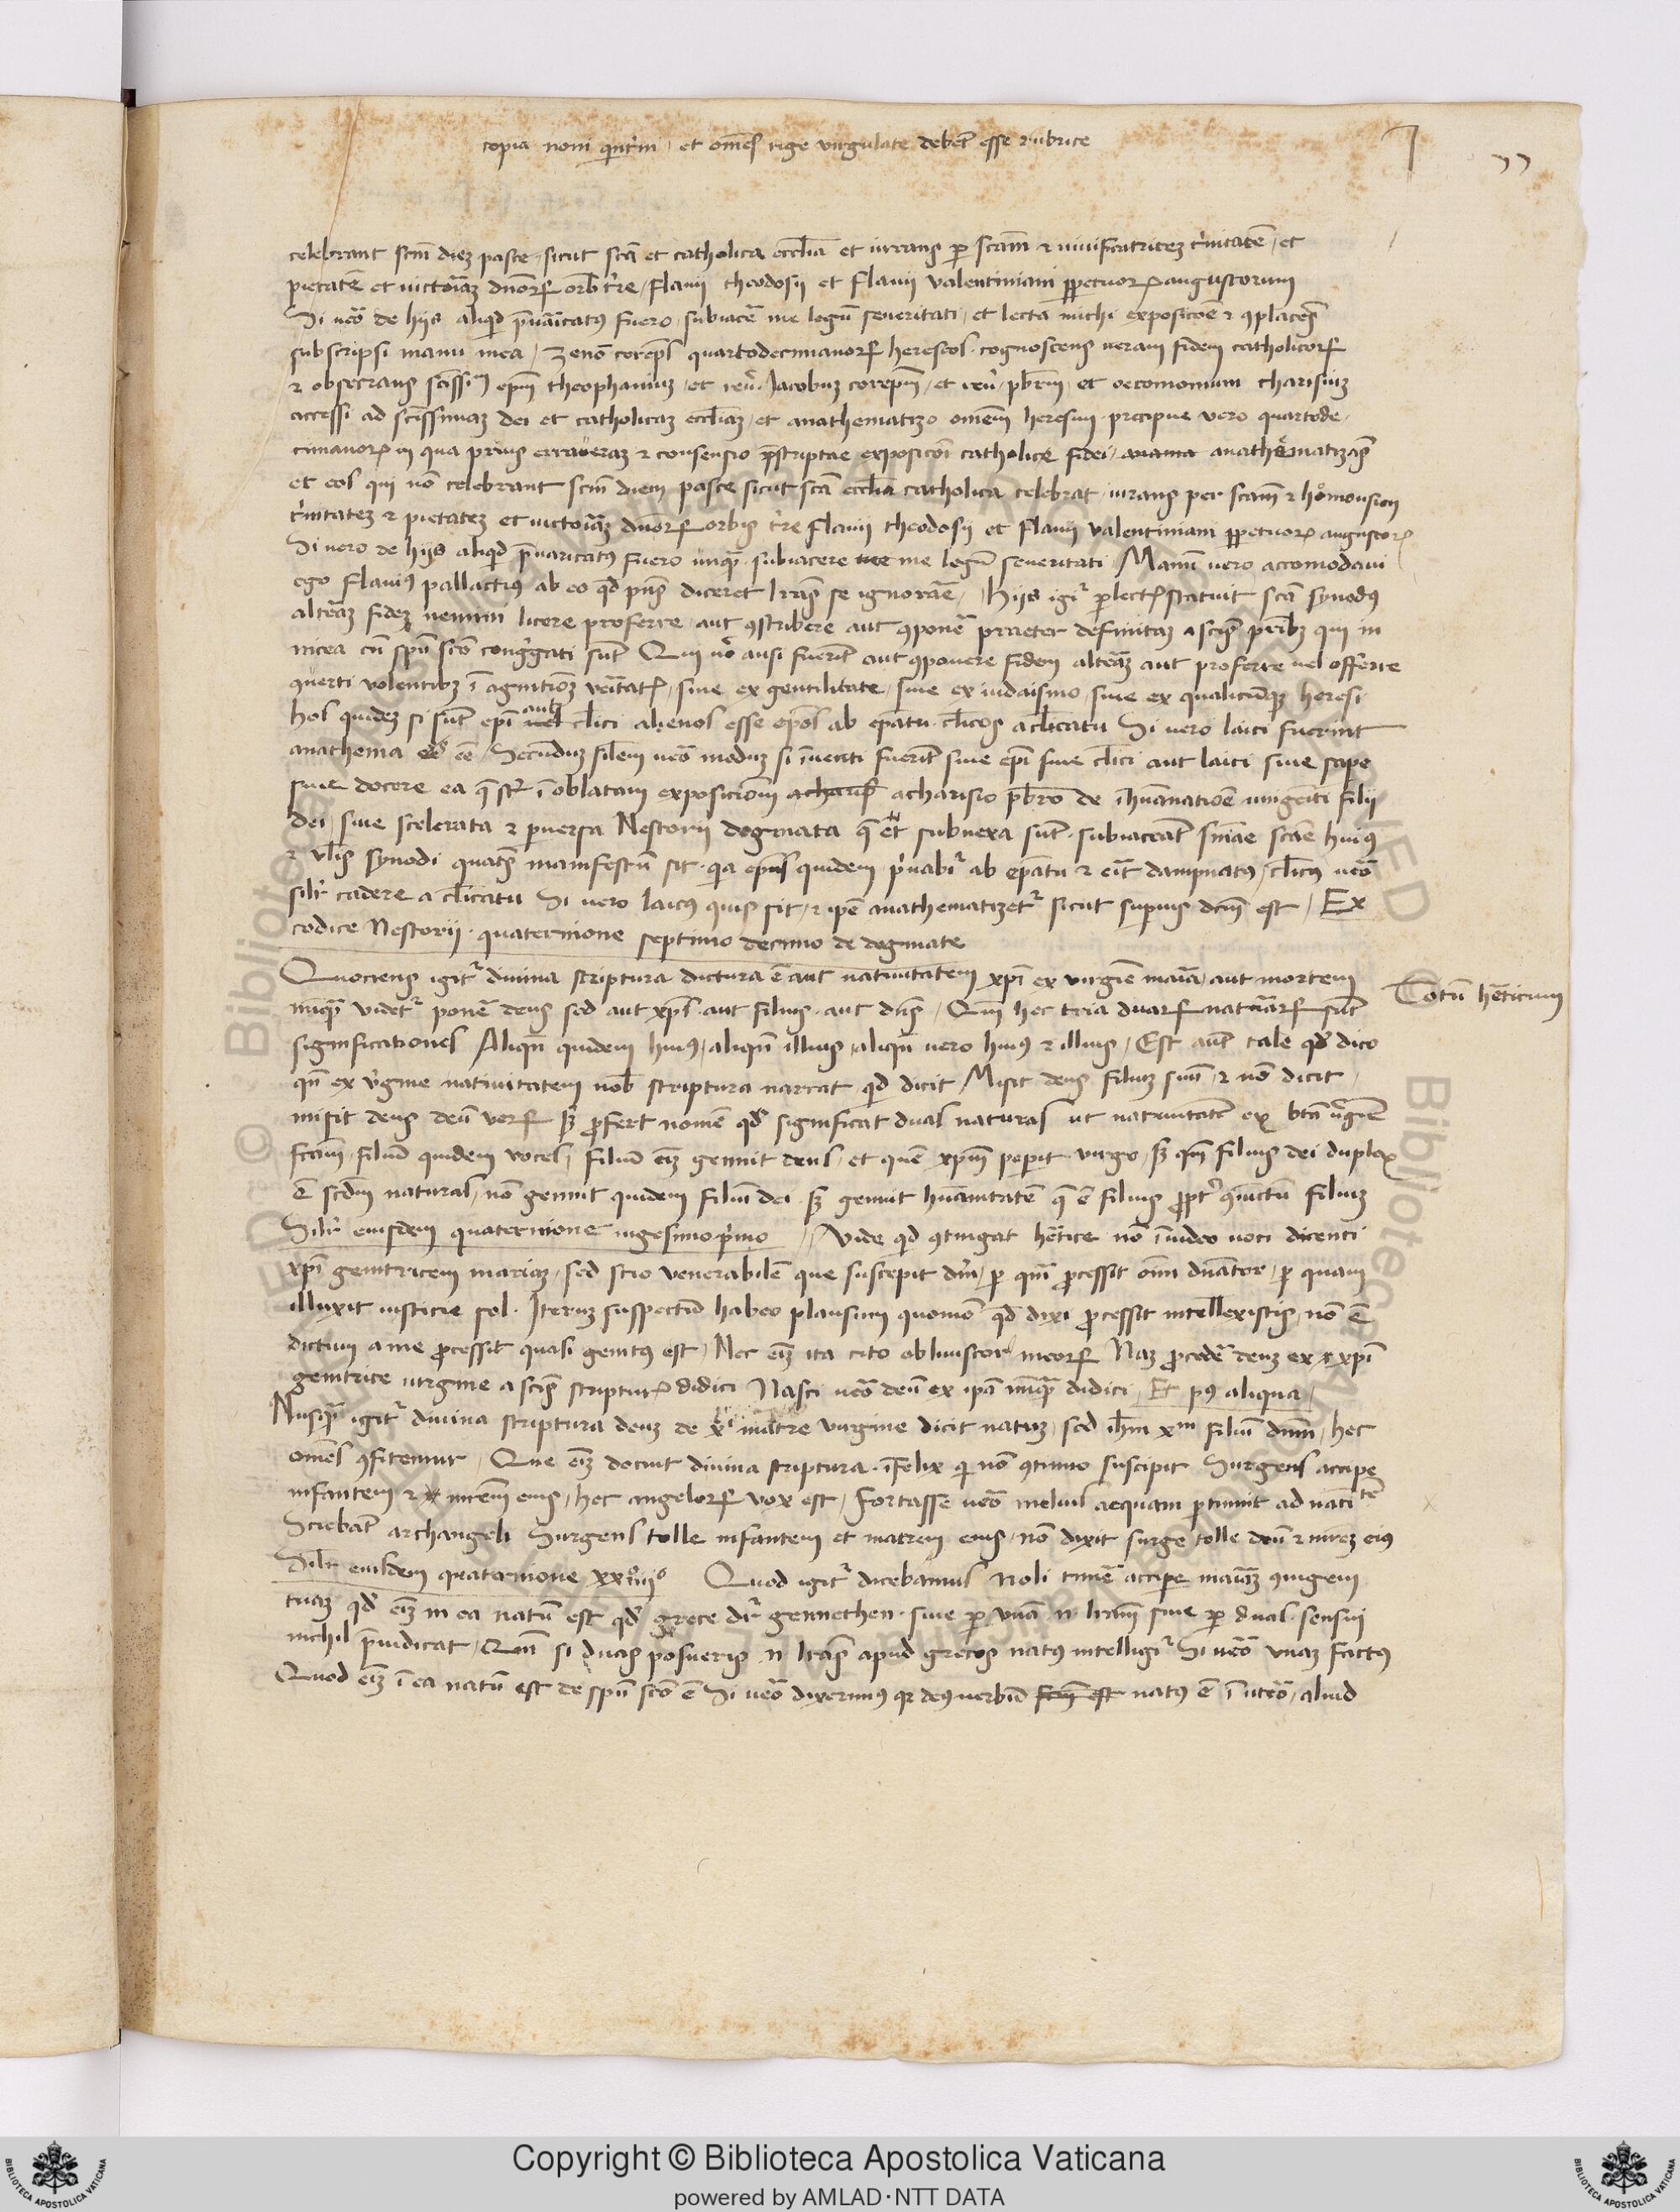 copia noni quīt'ni et omēs rige virgulate debēt esse rubrice
77
celebrant scm̄ diez pasce sicut scā et catholica eccl̄ia et iurans p scam̄ ⁊ viuificatricez t'nitatē et
pietatē et victoīaz dn̄orꝝ orb' t're flauii theodosii et flauii valentiniani ppetuorꝝ augustorum
Si uēo de hijs aliqd' p̄uāicatus fuero subiacē me legū seueritati et lecta michi expositiōe ⁊ ꝯplacēs
subscripsi manu mea zenō corep̄s quartodecimanorꝝ hereseos cognoscens ueram fidem catholicorꝝ
⁊ obsecrans scīssim̄ ep̄m theophanium et reu' Jacobum corep̄m et reu' pb̄rm et oeconomum charisium
accessi ad scīssimaz dei et catholicaz eccl̄iaz et anathematizo omēm heresim precipue vero quartode
cimanorꝝ in qua prius erraueraz ⁊ consensio p̄scriptae expositiōi catholice fidei anama anathematizās
et eos qui nō celebrant scm̄ diem pasce sicut scā eccl̄ia catholica celebrat iurans per scam̄ ⁊ homousion
t'nitatez ⁊ pietatez et victoīaz dn̄orꝝ orbis t're flauii theodosii et flauii valentiniani ppetuorꝝ augustorꝝ
Si vero de hijs aliqd' p̄uaricatus fuero unqᵃ subiacere me me legū seueritati Manū uero accomodaui
ego flauiꝰ palladiꝰ ab eo qd p̄ns diceret lr̄as se ignorāe Hijs igit' plectꝭ statuit scā synodꝰ
altēaz fidez nemini licere proferre aut ꝯscribere aut ꝯponē praeter definitaz a scīs pr̄ibꝫ qui in
nicea cū spū scō cong'gati sūt Qui uō ausi fuerīt aut ꝯponere fidem altēaz aut proferre uel offerre
ꝯuerti volentibꝫ ī agnitiōꝫ ueītatꝭ siue ex gentilitate siue ex iudaismo siue ex qualicūqꝫ heresi
hos quidez si sūt ep̄i uel aut cl̄ici alienos esse ep̄os ab ep̄atu cl̄icos a cl̄icatu Si uero laici fuerint
anathema eos ēē Secundum sil̄em uēo modum si īuenti fuerīt siue ep̄i siue cl̄ici aut laici siue sape
siue docere ea q̄ sūt ī oblatam expositionem acharis acharisio pb̄ro de īhūanatiōe unigeniti filii
dei siue scelerata ⁊ puersa Nestorii dogmata q̄ et subnexa sūt subiaceāt sn̄iae scāe huiꝰ
⁊ ul̄is synodi quatꝰ manifestū sit qꝛ ep̄us quidem p'uabit' ab ep̄atu ⁊ eīt dampnatꝰ cl̄icꝰ uēo
sil'r cadere a cl̄icatu Si uero laicꝰ quis sit ⁊ ip̄e anathematizet' sicut supius dcm̄ est Ex
codice Nestorii quaternione septimo decimo de dogmate
Quociens igit' diuina scriptura dictura ē aut natiuitatem xp̄i ex virgīe maīa aut mortem
nuqᵃ videt' ponē deus sed aut xp̄s aut filius aut dn̄s Qm̄ hec tria duarꝝ naturarꝝ sūt
Totū hēticum
significationes Aliqn̄ quidem huiꝰ aliqn̄ illius aliqn̄ uero huiꝰ ⁊ illius Est aut̄ tale qd' dico
qn̄ ex v'gine natiuitatem nob' scriptura narrat qd dicit Misit deus filium suū ⁊ nō dicit
misit deus deū verꝝ sꝫ ꝓfert nomē qd' significat duas naturas ut natiuitatē ex btā v'gīe
fcām filiū quidem voces filiū eīz genuit deus et quē xp̄m pepit virgo sꝫ qm̄ filius dei duplex
ē scdm̄ naturas nō genuit quidem filiū dei sꝫ genuit hūanitatē q̄ ē filius ꝓpt' ꝯiūctū filium
Sil'r eiusdem quaternione uigesimoprimo Vide qd ꝯtingat hētice nō īuideo uoci dicenti
xp̄i genitricem mariaz sed scio venerabilē que suscepit dm̄ p quā ꝓcessit oīm dn̄ator p quam
illuxit iusticie sol Iterum suspectū habeo plausum quomō qd dixi ꝓcessit intellexistis nō ē
dictum a me ꝓcessit quasi genitꝰ est Nec eīz ita cito obliuiscor meorꝝ Naz ꝓcedē deuz ex xp̄i
genitrice uirgine a scīs scripturꝭ didici Nasci uēo deū ex ip̄a nuqᵃ didici Et pꝰ aliqua
Nusqᵃ igit' diuina scriptura deuz de xi matre virgine dicit natuz sed ih̄m xm̄ filiū dn̄m hec
omēs ꝯfitemur Que eīz docuit diuina scriptura īfelix qi nō ꝯtinuo suscipit Surgens accipe
infantem ⁊ mrēm eius hec angelorꝝ vox est Fortasse uēo melius aequam ptinuit ad natītē
Sciebāt archangeli Surgens tolle infantem et matrem eius nō dixit surge tolle deū ⁊ mrēz eiꝰ
Sil'r eiusdem quaternione xxiiijᵒ Quod igit' dicebamus Noli timē accipe maīaz ꝯiugem
tuaz qd' eīz in ea natū est qd' grece dr̄ gennethen siue p unā n lrām siue p duas sensui
nichil p̄iudicat Qm̄ si duas posueris n lrās apud grecos natꝰ intelligi' Si uēo unaz factꝰ
Quod eīz ī ea natū est de spū scō ē Si uēo dixerimꝰ qꝛ deꝰ uerbū fcm̄ est natꝰ ē ī utēo aliud
Copyright © Biblioteca Apostolica Vaticana
powered by AMLAD·NTT DATA